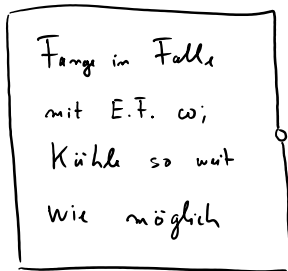 Fange in Falle
mit E.F. ω;
Kühle so weit
wie möglich